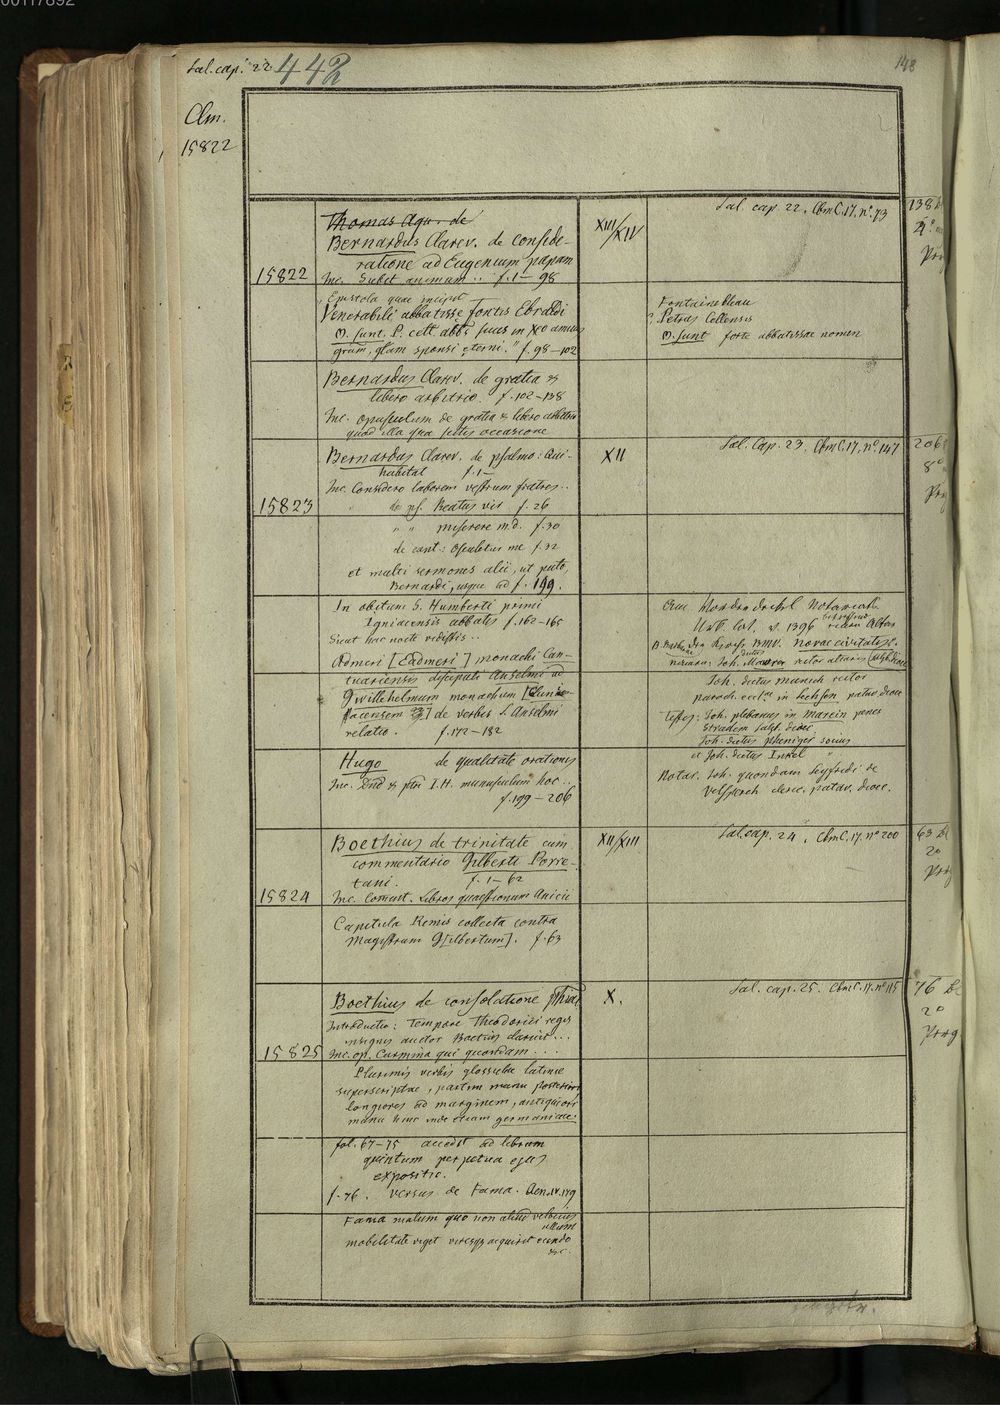 00117892
Sal. cap. 22
442
148
Clm.
15822
Thomas Aqu. de
Bernardus Clarev. de conside-
ratione ad Eugenium papam
15822
Inc. Subit animum .. f. 1 – 98
XIII/XIV
Sal. cap. 22, Cbm C. 17, nº. 73
138 bl
4º
Prg
Epistola quae incipit
Venerabili abbatisse fontis Ebraldi
M. sunt. P. cell abbs suus in Xro
sponsi eterni." f. 98–102
Fontainebleau
? Petrus Cellensis
M. sunt forte abbatissae nomen
Bernardus Clarev. de gratia et
libero arbitrio. f. 102–138
Inc. opusculum de gratia et libero arbitrio
quod illa qua scitis occasione
Bernardus Clarev. de psalmo: Qui
habitat f. 1 –
XII
Sal. Cap. 23, Cbm C. 17, nº. 147
206
8º
Prg
Inc. Considero laborem vestrum fratres ..
15823
de ps. Beatus vir f. 26
" " miserere m.d. f. 30
de cant.: osculetur me f. 32
et multi sermones alii, ut puto,
Bernardi, usque ad f. 199.
In obitum S. Humberti primi
Igniacensis abbatis f. 162–165
Sicut hac nocte vidistis ..
Notariats
Urk. lat. v. 1396
B.M.V. novae civitatis
Joh. rector altaris
Admeri [Eadmeri] monachi Can-
tuariensis discipuli Anselmi ad
Gwillehelmum monachum
de verbis S. Anselmi
relatio. f. 172–182
Joh. dictus munich rector
paroch. eccl. in patav. dioc.
Testes: Joh. plebanus in marein penes
dioc.
Joh. dictus socius
et Joh. dictus
Hugo de qualitate orationis
f. 199 – 206
Notar. Joh. quondam Seyfridi de
cleric. patav. dioc.
Boethius de trinitate cum
commentario Gilberti Porre-
tani. f. 1 – 62
XII/XIII
Sal. cap. 24, Cbm C. 17, nº 200
63 bl
2º
Prg
15824
Inc. Coment. Libros quaestionum Anicii
Capitula Remis collecta contra
Magistrum G[ilbertum]. f. 63
Boethius de consolatione phiae
X.
Sal. cap. 25. Cbm C. 17. nº 115
76 bl
2º
Prg
Introductio: Tempore Theodorici regis
insignis auctor Boetius claruit ...
15825
Inc. op. Carmina qui quondam ...
Plurimis verbis glossulae latinae
superscriptae, partim manu posteriori
longiores ad marginem, antiquiori
manu hinc inde etiam germanicae
fol. 67–75 accedit ad librum
quintum perpetua ejus
expositio.
f. 76. versus de Fama. Aen. IV. 179
Fama malum quo non aliud velocius
ullum
mobilitate viget viresqz acquirit eundo
etc.